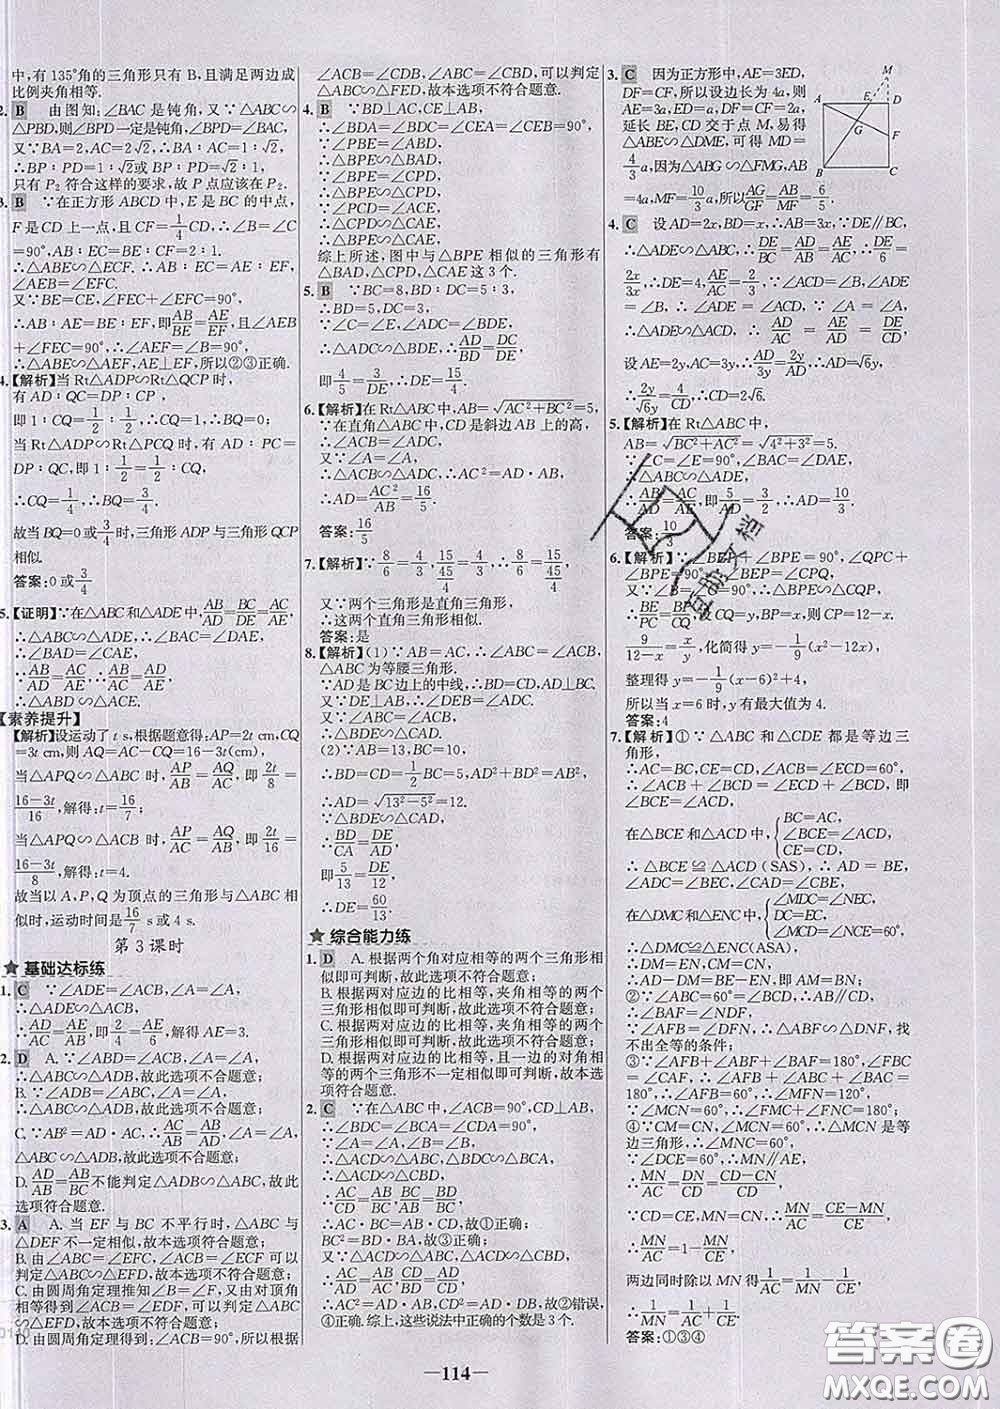 中,有135°角的三角形只有 B,且满足两边成
比例夹角相等.
2. B 由图知,∠BAC 是钝角,又∵△ABC∽
△PBD,则∠BPD一定是钝角,∠BPD=∠BAC,
又∵BA=2,AC=2√2,∴BA∶AC=1∶√2,
∴BP∶PD=1∶√2或BP∶PD=√2∶1,
只有 P₂ 符合这样的要求,故 P 点应该在 P₂.
3. B ∵在正方形 ABCD 中,E 是 BC 的中点,
F 是 CD 上一点,且 CF=1/4 CD,∴∠B=∠C
=90°,AB∶EC=BE∶CF=2∶1.
∴△ABE∽△ECF. ∴AB∶EC=AE∶EF,
∠AEB=∠EFC.
又∵BE=CE,∠FEC+∠EFC=90°,
∴AB∶AE=BE∶EF,即AB/BE=AE/EF,且∠AEB
+∠FEC=90°,∴∠AEF=∠B=90°.
∴△ABE∽△AEF,AE⊥EF,所以②③正确.
4.【解析】当 Rt△ADP∽Rt△QCP 时,
有 AD∶QC=DP∶CP,
即 1∶CQ=1/2∶1/2,∴CQ=1,∴BQ=0;
当 Rt△ADP∽Rt△PCQ 时,有 AD∶PC=
DP∶QC,即 1∶1/2=1/2∶CQ,
∴CQ=1/4,∴BQ=3/4,
故当 BQ=0或3/4时,三角形 ADP 与三角形 QCP
相似.
答案:0或3/4
5.【证明】∵在△ABC 和△ADE 中,AB/AD=BC/DE=AC/AE,
∴△ABC∽△ADE,∴∠BAC=∠DAE,
∴∠BAD=∠CAE,
∵AB/AD=AC/AE,∴AB/AC=AD/AE,
∴△ABD∽△ACE.
【素养提升】
【解析】设运动了 t s,根据题意得:AP=2t cm,CQ
=3t cm,则 AQ=AC-CQ=16-3t(cm),
当△APQ∽△ABC 时,AP/AB=AQ/AC,即2t/8=
(16-3t)/16,解得:t=16/7;
当△APQ∽△ACB 时,AP/AC=AQ/AB,即2t/16=
(16-3t)/8,解得:t=4.
故当以 A,P,Q 为顶点的三角形与△ABC 相
似时,运动时间是16/7 s或4 s.
第 3 课时
★ 基础达标练
1. C ∵∠ADE=∠ACB,∠A=∠A,
∴△ADE∽△ACB,
∴AD/AC=AE/AB,即2/4=AE/6,解得 AE=3.
2. D A. ∵∠ABD=∠ACB,∠A=∠A,
∴△ABC∽△ADB,故此选项不合题意;
B. ∵∠ADB=∠ABC,∠A=∠A,
∴△ABC∽△ADB,故此选项不合题意;
C. ∵AB²=AD·AC,∴AC/AB=AB/AD,∠A=∠A,
∴△ABC∽△ADB,故此选项不合题意;
D. AD/AB=AB/BC不能判定△ADB∽△ABC,故此
选项符合题意.
3. A A. 当 EF 与 BC 不平行时,△ABC 与
△DEF 不一定相似,故本选项符合题意;
B. 由∠ABC=∠EFC,∠ACB=∠ECF 可以
判定△ABC∽△EFD,故本选项不符合题意;
C. 由圆周角定理推知∠B=∠F,又由对顶角
相等得到∠ACB=∠EDF,可以判定△ABC∽
△EFD,故本选项不符合题意;
D. 由圆周角定理得到:∠ACB=90°,所以根据
∠ACB=∠CDB,∠ABC=∠CBD,可以判定
△ABC∽△FED,故本选项不符合题意.
4. B ∵BD⊥AC,CE⊥AB,
∴∠BDA=∠BDC=∠CEA=∠CEB=90°,
∵∠PBE=∠ABD,
∴△BPE∽△BAD,
∵∠BPE=∠CPD,
∴△BPE∽△CPD,
∵∠PCD=∠ACE,
∴△CPD∽△CAE,
∴△BPE∽△CAE,
综上所述,图中与△BPE 相似的三角形有
△BAD,△CPD,△CAE 这 3 个.
5. B ∵BC=8,BD∶DC=5∶3,
∴BD=5,DC=3,
∵∠C=∠E,∠ADC=∠BDE,
∴△ACD∽△BED,∴AD/BD=DC/DE,
即4/5=3/DE,∴DE=15/4.
6.【解析】在 Rt△ABC 中,AB=√(AC²+BC²)=5,
∵在直角△ABC 中,CD 是斜边 AB 上的高,
又∵∠A=∠A,
∴△ACB∽△ADC,∴AC²=AD·AB,
∴AD=AC²/AB=16/5.
答案:16/5
7.【解析】∵8/6=4/3,15/(45/4)=4/3,∴8/6=15/(45/4),
又∵两个三角形是直角三角形,
∴这两个直角三角形相似.
答案:是
8.【解析】(1)∵AB=AC,∴∠B=∠ACB,
△ABC 为等腰三角形.
∵AD 是 BC 边上的中线,∴BD=CD,AD⊥BC.
又∵DE⊥AB,∴∠DEB=∠ADC,
∴△BDE∽△CAD.
(2)∵AB=13,BC=10,
∴BD=CD=1/2 BC=5,
∴AD=√(13²-5²)=12.
∵△BDE∽△CAD,
∴BD/CA=DE/AD,
即5/13=DE/12,
∴DE=60/13.
★ 综合能力练
1. D A. 根据两个角对应相等的两个三角形相
似即可判断,故此选项不符合题意;
B. 根据两对应边的比相等,夹角相等的两个三
角形相似即可判断,故此选项不符合题意;
C. 根据两对应边的比相等,夹角相等的两个三
角形相似即可判断,故此选项不符合题意;
D. 两对应边的比相等,且一边的对角相等
的两个三角形不一定相似即可判断,故此选
项符合题意.
2. C ∵在△ABC 中,∠ACB=90°,CD⊥AB,
∴∠BDC=∠BCA=∠CDA=90°,
∵∠A=∠A,∠B=∠B,
∴△ACD∽△ABC,△BDC∽△BCA,
∴AC/AB=CD/BC,BC/AB=BD/BC,
∴AC·BC=AB·CD,故①正确;
BC²=BD·BA,故③正确;
又∵△ACD∽△ABC∽△CBD,
∴AC/AB=AD/AC,AC/BC=AD/CD=CD/BD,
∴AC²=AD·AB,CD²=AD·BD,故②错误,
④正确.综上,这些说法中正确的个数是3个.
3. C 因为正方形中,AE=3ED,
DF=CF,所以设边长为 4a,则
AE=3a,ED=a,DF=CF=2a,
延长 BE,CD 交于点 M,易得
△ABE∽△DME,可得 MD=
4/3 a,因为△ABG∽△FMG,AB=
4a,MF=10/3 a,所以AG/GF=AB/MF=6/5.
A
E
M
D
G
F
B
C
4. C 设 AD=2x,BD=x,∴AB=3x,∵DE∥BC,
∴△ADE∽△ABC,∴DE/BC=AD/AB=AE/AC,∴DE/6=
2x/3x,∴DE=4,AE/AC=2/3,∵∠ACD=∠B,∠ADE
=∠B, ∴∠ADE=∠ACD, ∵∠A=∠A,
∴△ADE∽△ACD, ∴AD/AC=AE/AD=DE/CD,
设 AE=2y,AC=3y,∴AD/3y=2y/AD,∴AD=√6y,
∴2y/√6y=4/CD,∴CD=2√6.
5.【解析】在 Rt△ABC 中,
AB=√(BC²+AC²)=√(4²+3²)=5.
∵∠C=∠E=90°,∠BAC=∠DAE,
∴△ABC∽△ADE,
∴AB/AD=AC/AE,即5/AD=3/2,∴AD=10/3.
答案:10/3
6.【解析】∵∠BEP+∠BPE=90°,∠QPC+
∠BPE=90°,∴∠BEP=∠CPQ,
又∠B=∠C=90°,∴△BPE∽△CQP,
∴BE/PC=BP/CQ,设 CQ=y,BP=x,则 CP=12-x,
∴9/(12-x)=x/y,化简得 y=-1/9(x²-12x),
整理得 y=-1/9(x-6)²+4,
所以当 x=6 时,y 有最大值为 4.
答案:4
7.【解析】①∵△ABC 和△CDE 都是等边三
角形,
∴AC=BC,CE=CD,∠ACB=∠ECD=60°,
∴∠ACB+∠BCD=∠ECD+∠BCD,即
∠BCE=∠ACD,
在△BCE 和△ACD 中,{BC=AC, ∠BCE=∠ACD, CE=CD,
∴△BCE≌△ACD (SAS),∴AD=BE,
∠ADC=∠BEC,∠CAD=∠CBE,
在△DMC 和△ENC 中,{∠MDC=∠NEC, DC=EC, ∠MCD=∠NCE=60°,
∴△DMC≌△ENC(ASA),
∴DM=EN,CM=CN,
∴AD-DM=BE-EN,即 AM=BN;
②∵∠ABC=60°=∠BCD,∴AB∥CD,
∴∠BAF=∠NDF,
∵∠AFB=∠DFN,∴△ABF∽△DNF,找
不出全等的条件;
③∵∠AFB+∠ABF+∠BAF=180°,∠FBC
=∠CAF,∴∠AFB+∠ABC+∠BAC=
180°,∴∠AFB=60°,∴∠MFN=120°,
∵∠MCN=60°,∴∠FMC+∠FNC=180°;
④∵CM=CN,∠MCN=60°,∴△MCN 是等
边三角形,∴∠MNC=60°,
∵∠DCE=60°,∴MN∥AE,
∴MN/AC=DN/CD=(CD-CN)/CD,
∵CD=CE,MN=CN,∴MN/AC=(CE-MN)/CE,
∴MN/AC=1-MN/CE,
两边同时除以 MN 得1/AC=1/MN-1/CE,
∴1/MN=1/AC+1/CE.
答案:①③④
—114—
答案圈
MXQE.COM